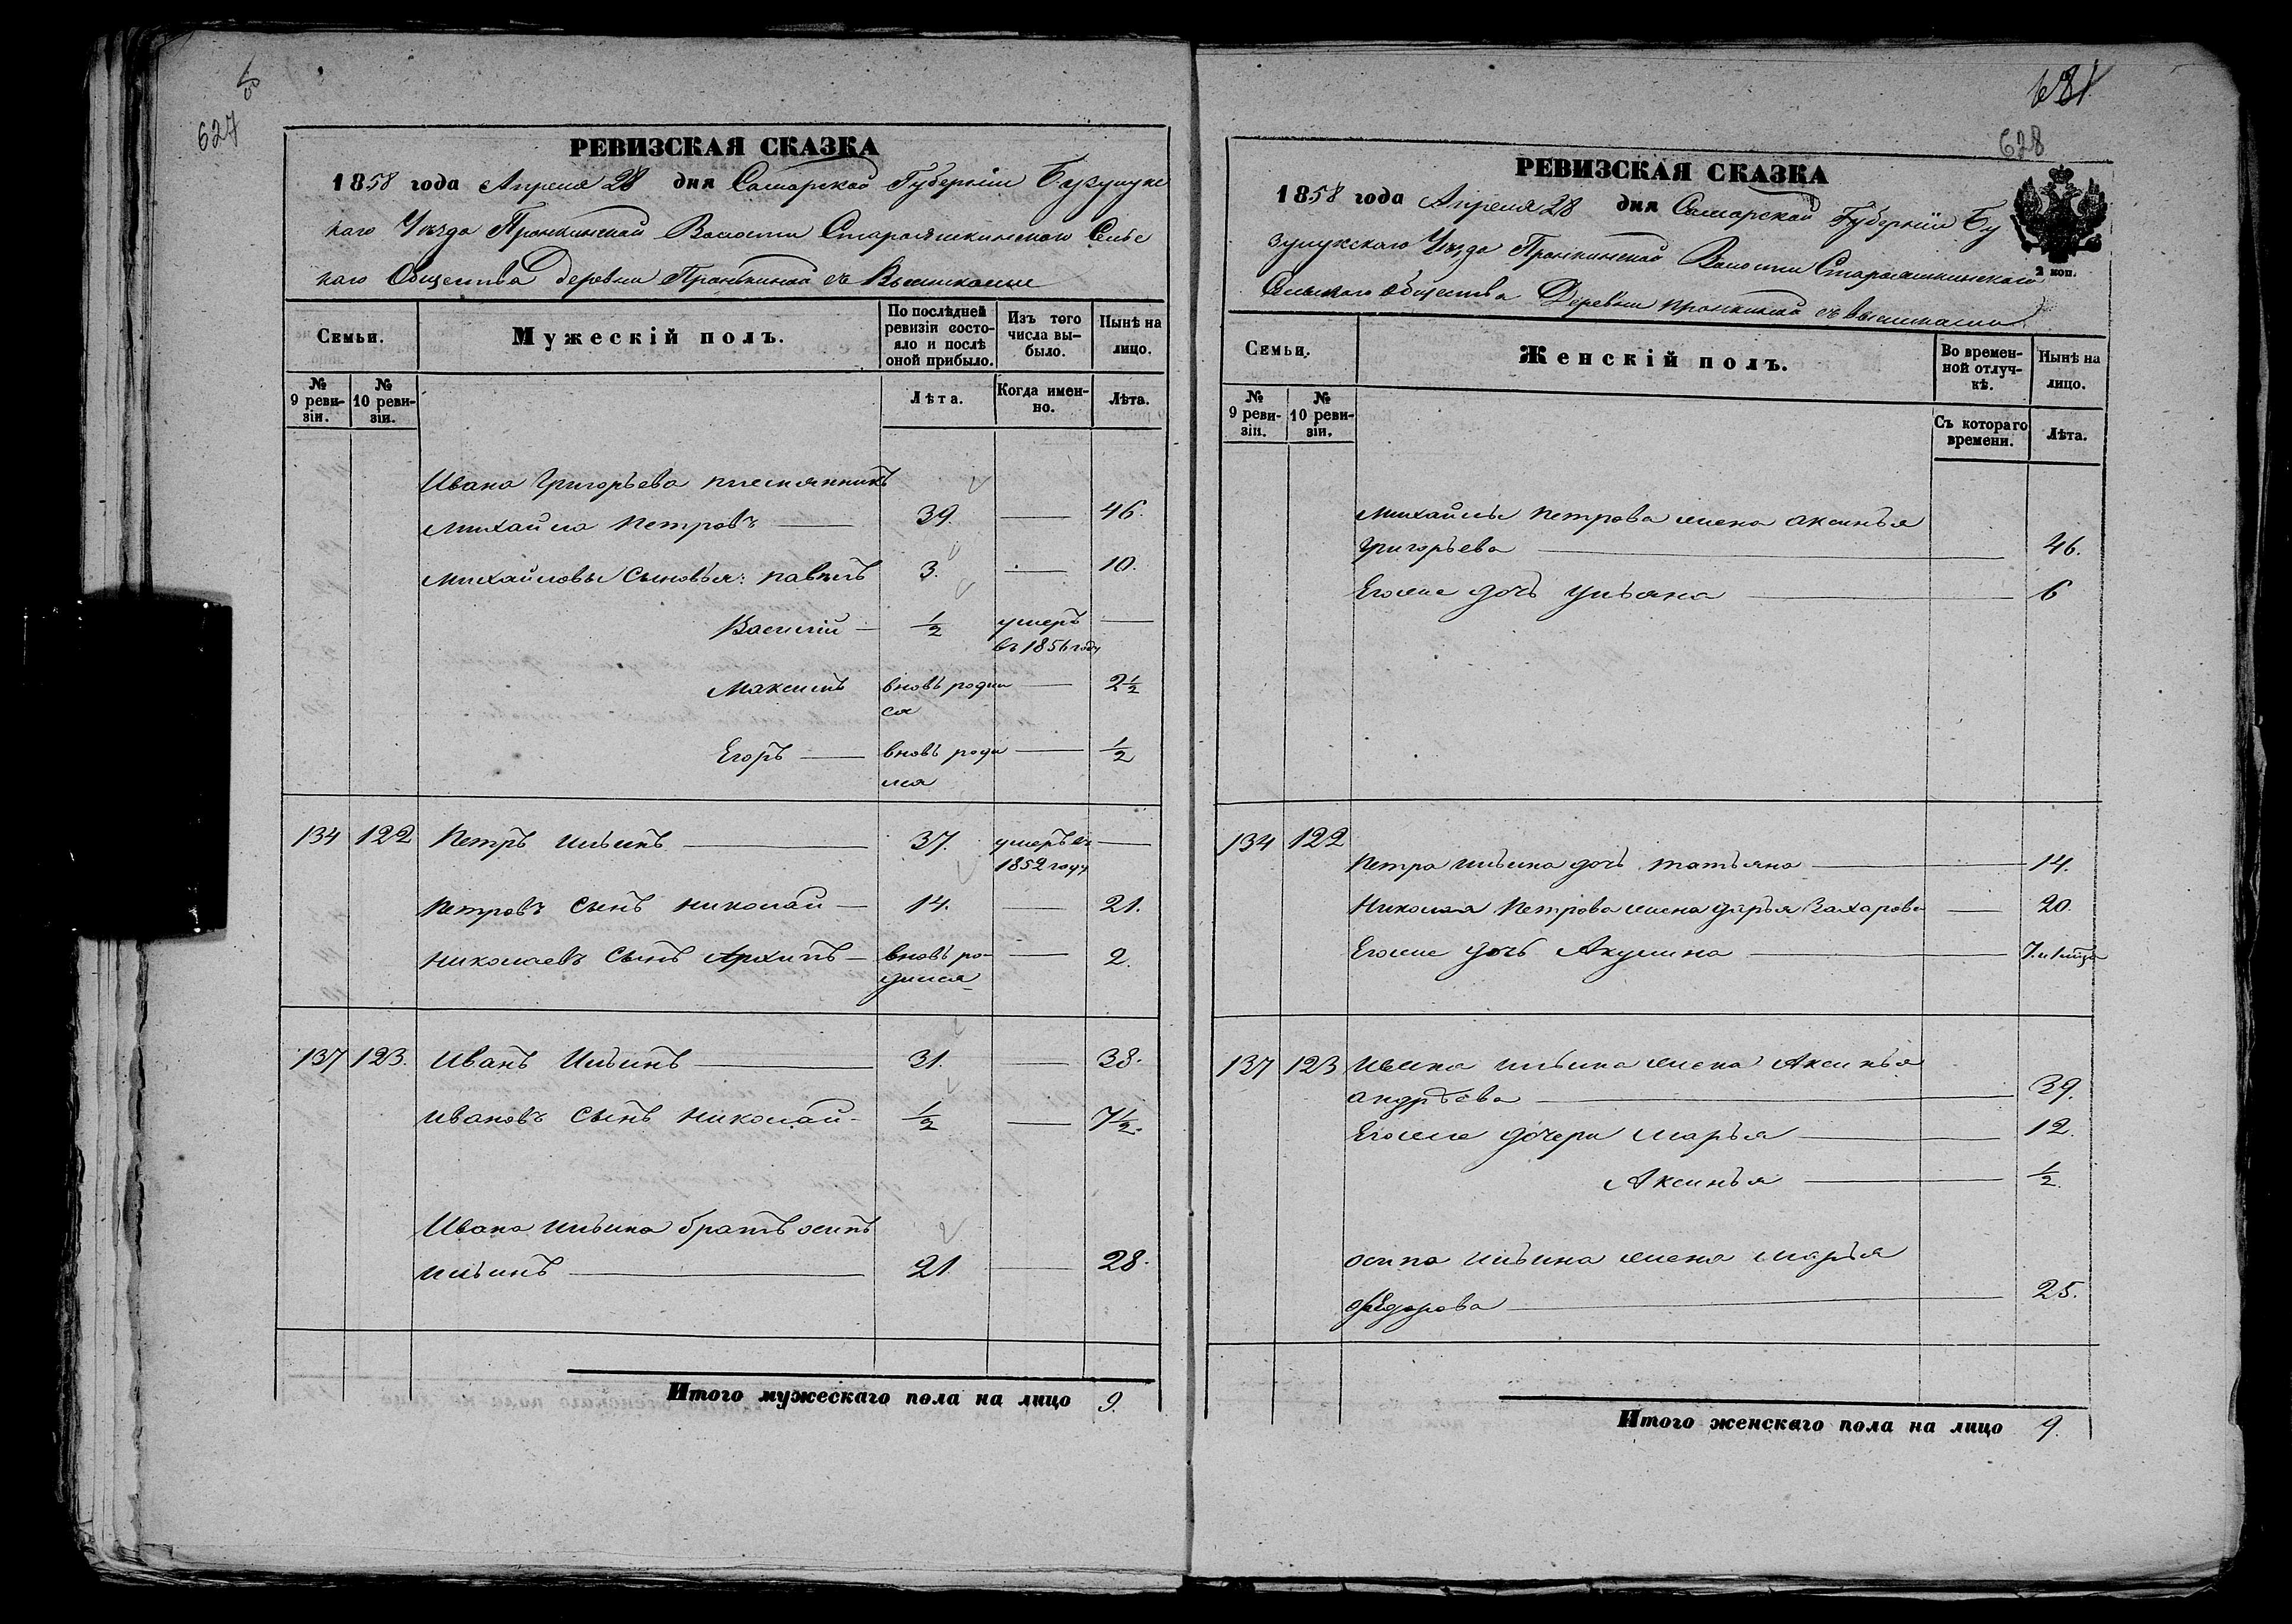 627
РЕВИЗСКАЯ СКАЗКА
1858 года Апреля 28 дня Самарской Губернiи Бузулукс
каго Уѣзда Пронкинской Волости Старояшкинскаго Сельс
каго Общества Деревни Пронькиной съ
Семьи.
Мужескiй полъ.
По послѣдней ревизiи состояло и послѣ оной прибыло.
Изъ того числа выбыло.
Нынѣ на лицо.
№ 9 ревизiи.
№ 10 ревизiи.
Лѣта.
Когда именно.
Лѣта.
Ивана Григорьева племянникъ
Михайла Петровъ 39. 46.
Михайловы Сыновья: Павелъ 3. 10.
Василiй ½ умеръ
въ 1856 году
Максимъ вновь родил 2½
ся
Егоръ вновь роди ½
лся
134 122 Петръ Ильинъ 37. умеръ въ
1852 году
Петровъ Сынъ Николай 14. 21.
Николаевъ Сынъ Архипъ вновь ро- 2.
дился
137 123. Иванъ Ильинъ 31. 38.
Ивановъ Сынъ Николай ½ 7½.
Ивана Ильина братъ Осипъ
Ильинъ 21 28.
Итого мужескаго пола на лицо 9.
681
628
РЕВИЗСКАЯ СКАЗКА
1858 года Апреля 28 дня Самарской Губернiи Бу
зулукскаго Уѣзда Пронкинской Волости Старояшкинскаго
Сельскаго Общества Деревни Пронкиной съ
2 коп.
Семьи.
Женскiй полъ.
Во временной отлучкѣ.
Нынѣ на лицо.
№ 9 ревизiи.
№ 10 ревизiи.
Съ котораго времени.
Лѣта.
Михайлы Петрова жена Аксинья
Григорьева 46.
Егоже дочь Ульяна 6
134 122
Петра Ильина дочь Татьяна 14.
Николая Петрова жена Дарья Захарова 20.
Егоже дочь Акулина
137 123 Ивана Ильина жена Аксинья
Андрѣева 39.
Егоже дочери Марья 12.
Аксинья ½.
Осипа Ильина жена Марья
Федорова 25.
Итого женскаго пола на лицо 9.